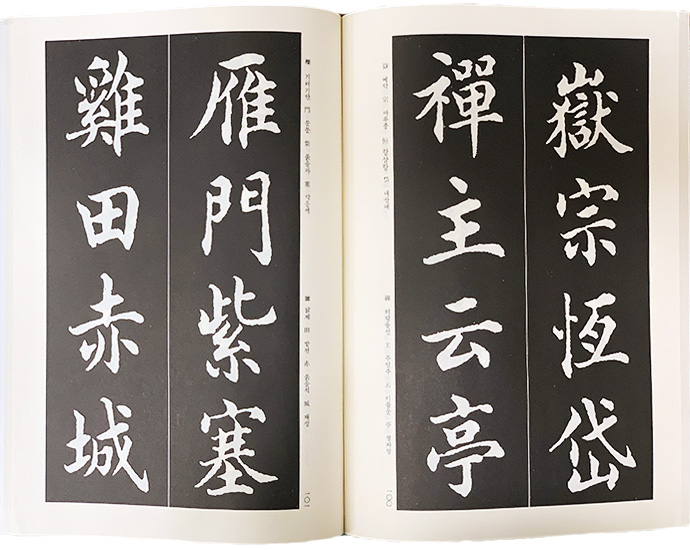 嶽宗恆岱
禪主云亭
嶽 메악 宗 마루종 恆 항상항 岱 대산대
主 주인주 云 이를운 亭 정자정
一〇〇
雁門紫塞
雞田赤城
雁 기러기안 門 문문 紫 붉을자 塞 막을새
雞 닭계 田 밭전 赤 붉을적 城 재성
一〇一